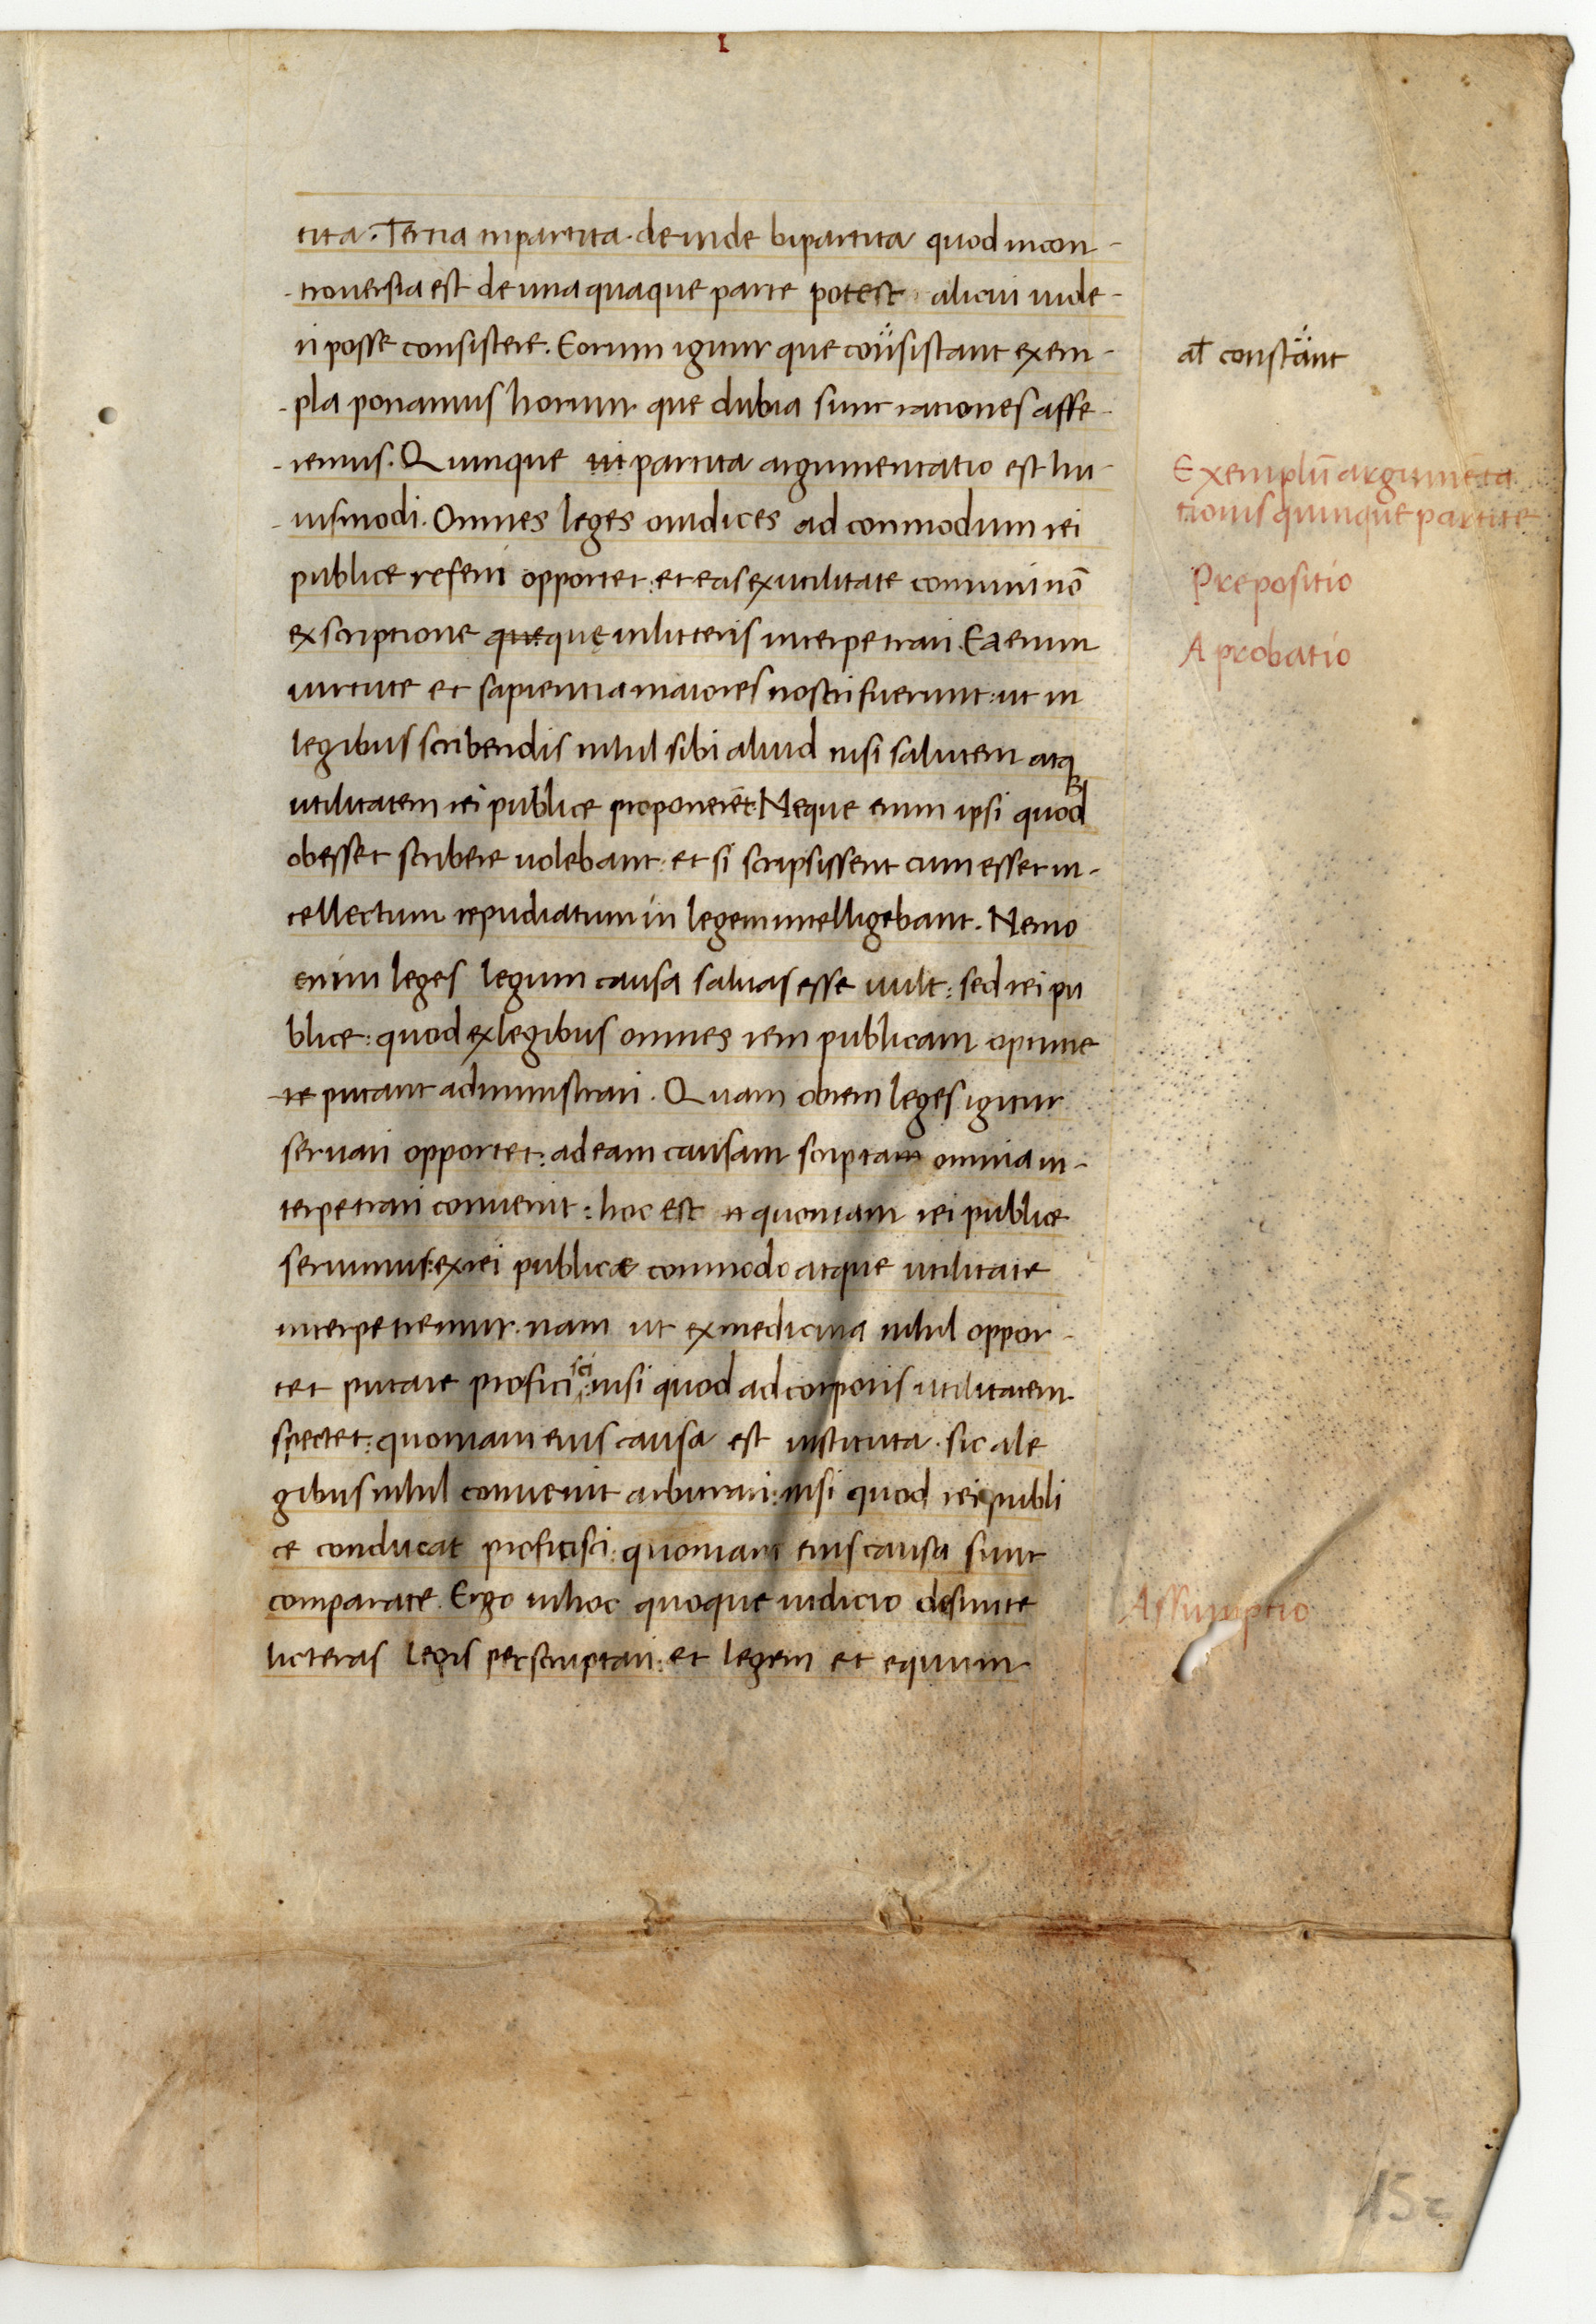 I
tita. Tertia tripartita. deinde bipartita quod incon-
-trouersia est de una quaque parte potest alicui uide-
ri posse consistere. Eorum igitur que consistant exem-
al constant
-pla ponamus horum que dubia sunt rationes affe-
-remus. Quinque partita argumentatio est hu-
Exemplū argumēta
tionis quinque partite
-iusmodi. Omnes leges o iudices ad conmodum rei
publice referri opportet: et eas ex utilitate communi nō
Prepositio
ex scriptione que que in litteris interpetrari. Ea enim
Aprobatio
uirtute et sapientia maiores nostri fuerunt: ut in
legibus scribendis nihil sibi aliud nisi salutem atq
utilitatem rei publice proponerēt. Neque enim ipsi quod
obesset scribere uolebant: et si scripsissent cum esset in-
tellectum repudiatum iri legem intelligebant. Nemo
enim leges legum causa saluas esse uult: sed rei pu
blice: quod ex legibus omnes rem publicam optime
-re putant administrari. Quam obrem leges igitur
seruari opportet: ad eam causam scriptam omnia in-
terpetrari conuenit: hoc est quoniam rei publice
seruimus: ex rei publicae commodo atque utilitate
interpetremur. nam ut ex medicina nihil oppor-
tet putare profici isci: nisi quod ad corporis utilitatem
spectet: quoniam eius causa est instituta. sic a le
gibus nihil conuenit arbitrari: nisi quod rei publi
ce conducat proficisci: quoniam eius causa sunt
comparate. Ergo in hoc quoque iudicio desinite
Assumptio
licteras legis perscriptari: et legem et equum
15r